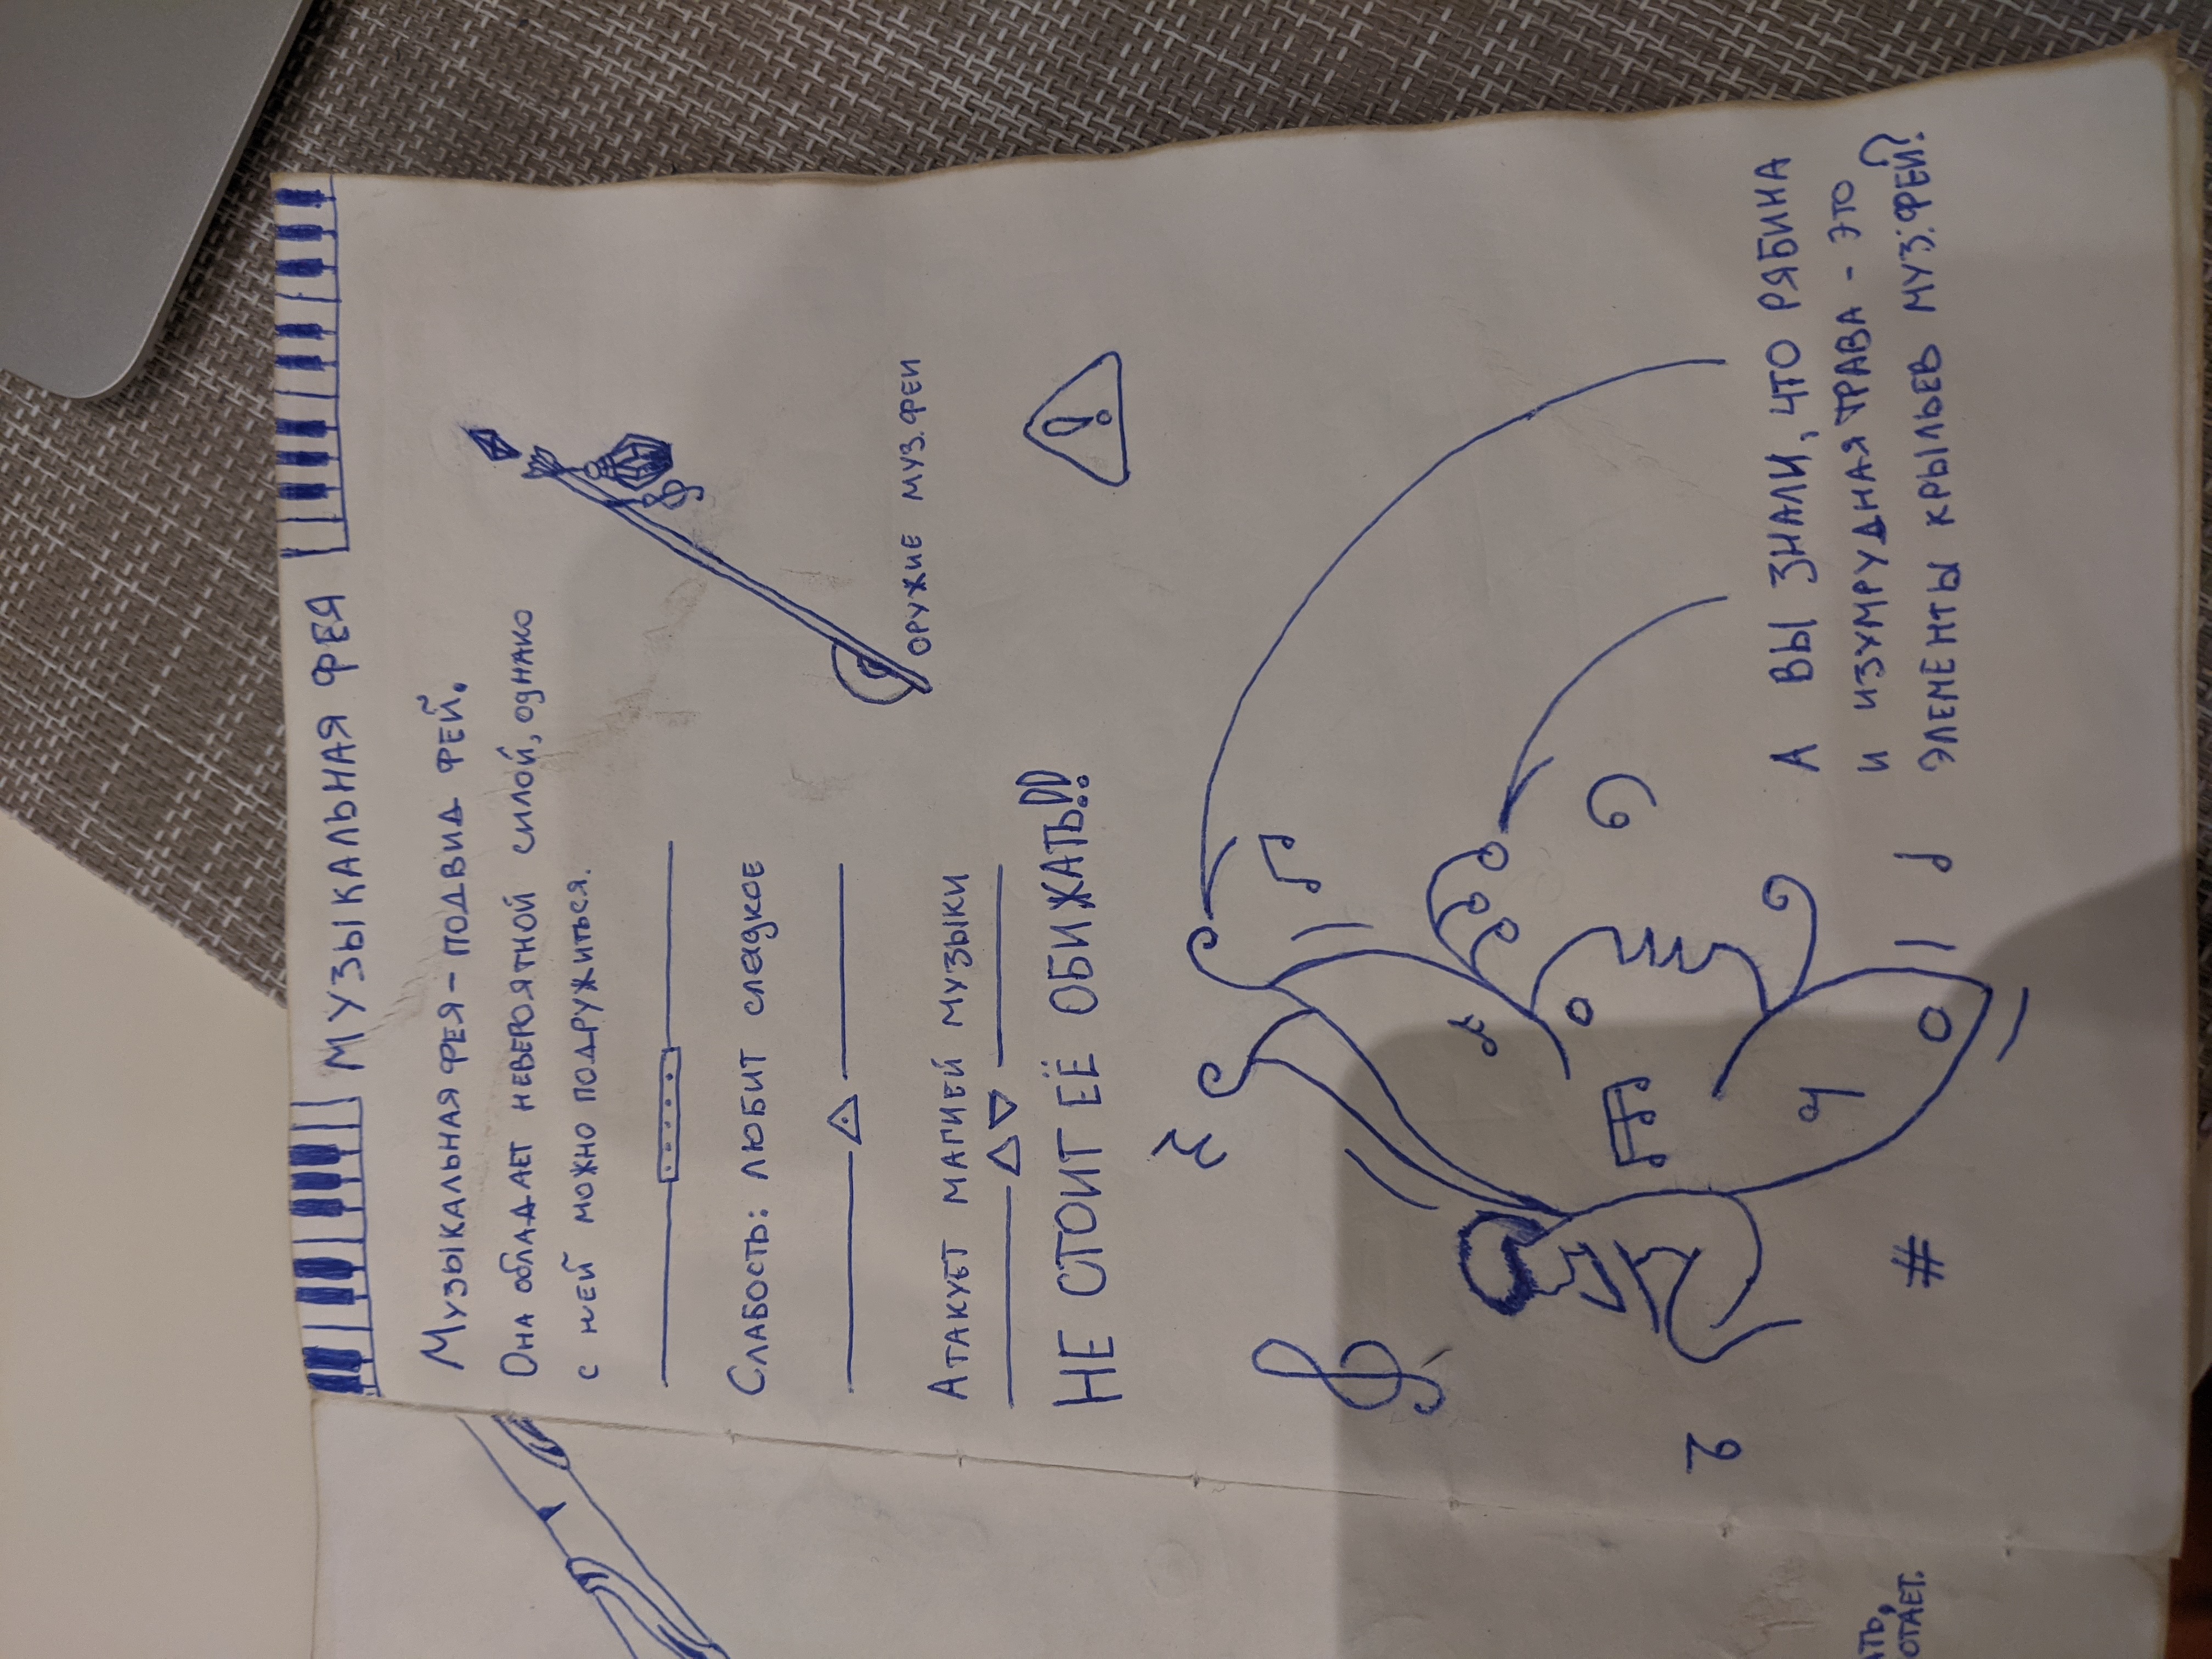 МУЗЫКАЛЬНАЯ ФЕЯ
Музыкальная фея – подвид фей.
Она обладает невероятной силой, однако
с ней можно подружиться.
Слабость: любит сладкое
Атакует магией музыки
ОРУЖИЕ МУЗ. ФЕИ
НЕ СТОИТ ЕЁ ОБИЖАТЬ!!
!
А ВЫ ЗНАЛИ, ЧТО РЯБИНА
И ИЗУМРУДНАЯ ТРАВА – ЭТО
ЭЛЕМЕНТЫ КРЫЛЬЕВ МУЗ. ФЕЙ?
#